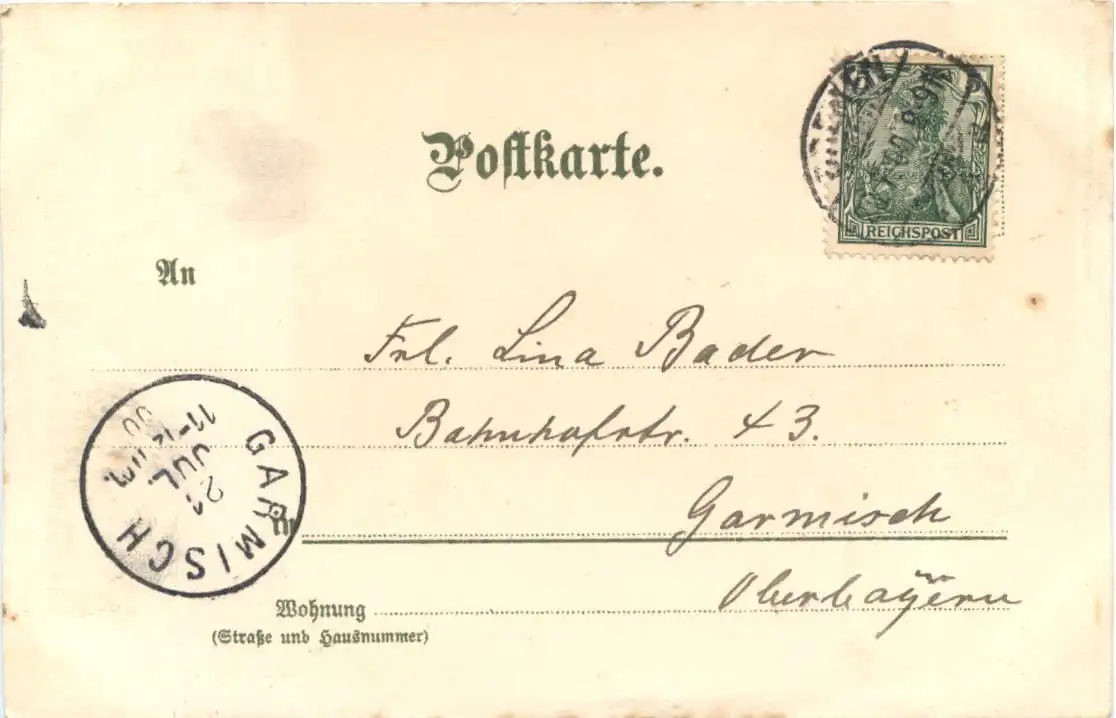 Postkarte.
REICHSPOST
An
Frl. Lina Bader
Bahnhofstr. 43.
Garmisch
Oberbayern
GARMISCH
21
JUL.
11-12
00
Wohnung
(Straße und Hausnummer)